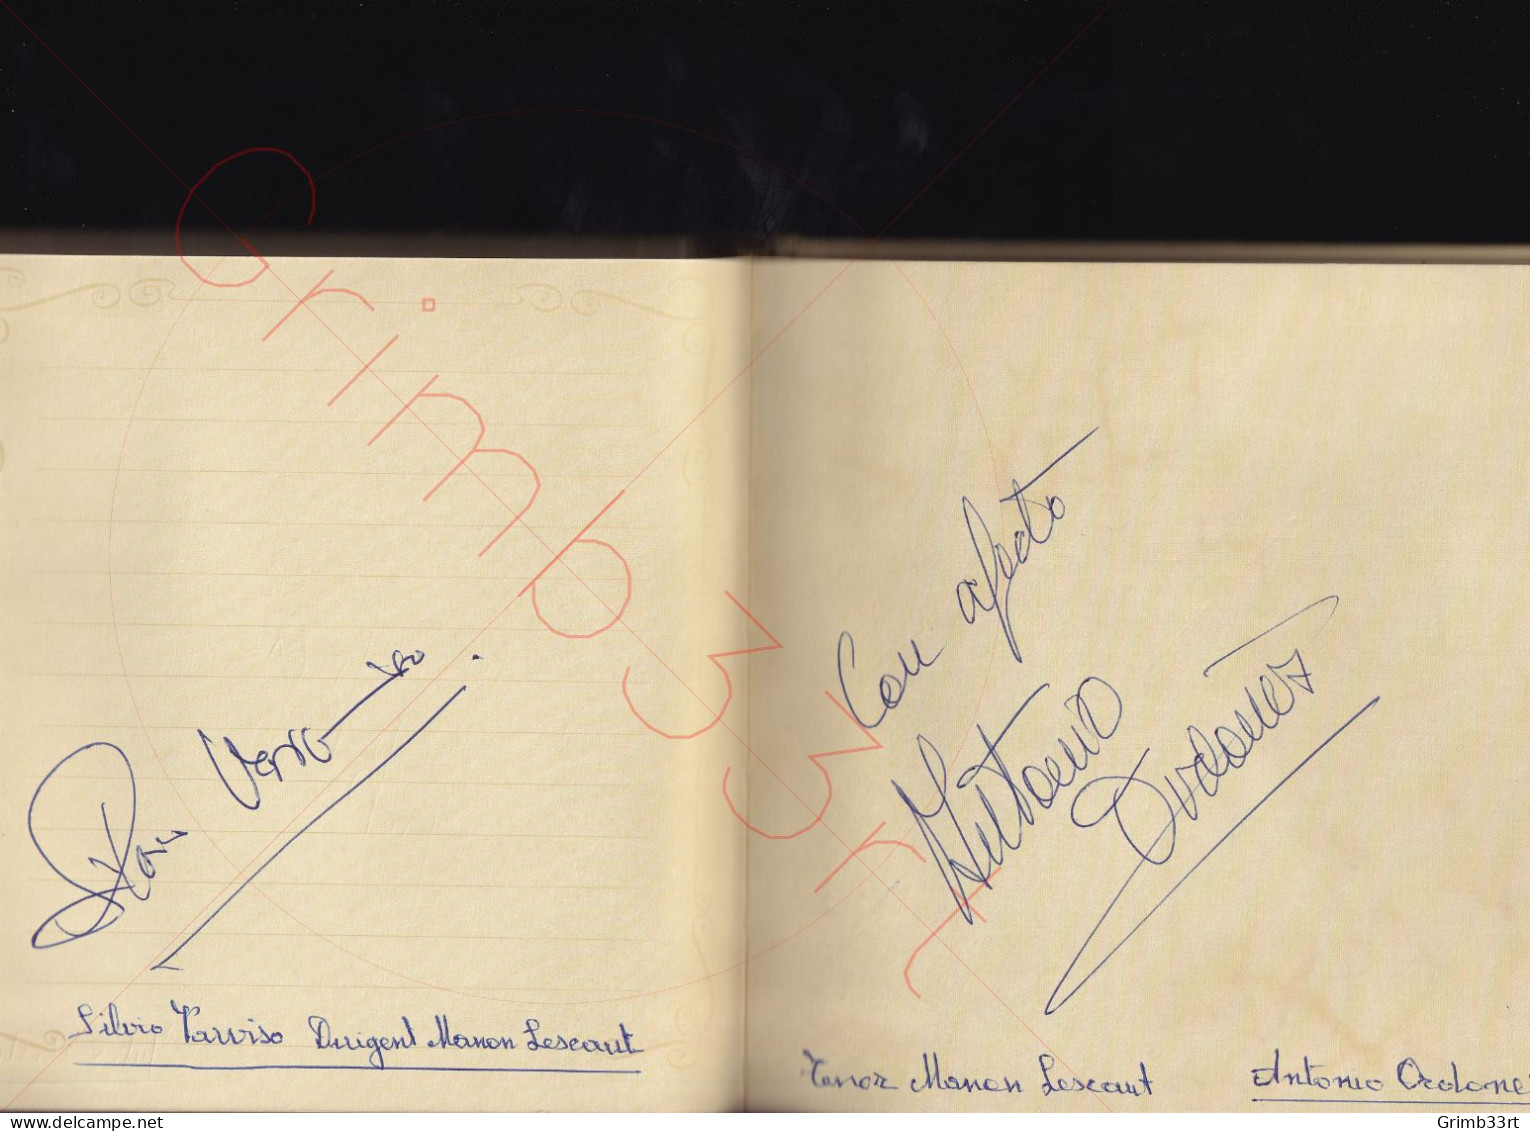 Silvio Varviso Dirigent Manon Lescaut
Con afecto
Antonio
Ordonez
Tenor Manon Lescaut Antonio Ordone
Grimb33rt
www.delcampe.net
Grimb33rt